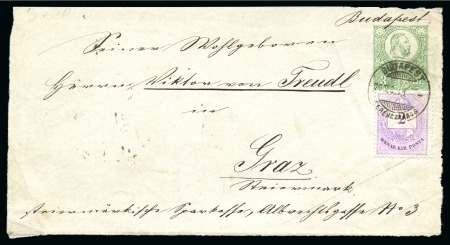 Budapest
Seiner Wohlgeboren
Herrn Viktor von Treudl
in
Graz
Steiermark
steiermärkische Sparkasse, Albrechtgasse No 3
BUDAPEST
2
MAGYAR KIR. POSTA